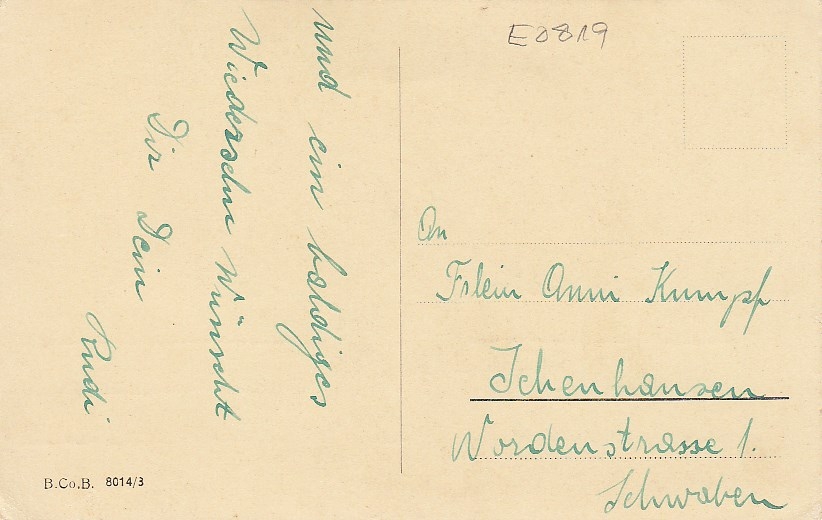 und ein baldiges
Wiedersehn wünscht
Dir Dein
Rudi
E0819
An
Frlein Anni Kumpf
Ichenhausen
Wordenstrasse 1.
Schwaben
B.Co.B. 8014/3